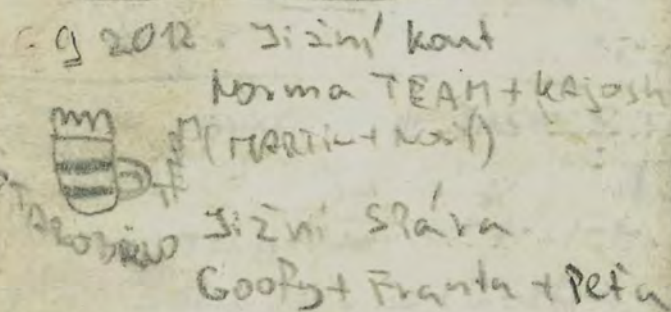 9 2012 Jižní kout
Norma TEAM + KAJOSH
(MARTIN +
Jižní Spára
Goofy + Franta + Peťa